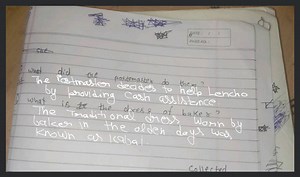 what did the postmaster do then?
The Postmaster decides to help Lencho
by providing cash assistance.
what is the dress of baker?
The Traditional dress worn by
baker in the olden days was
known as kabai
Collected